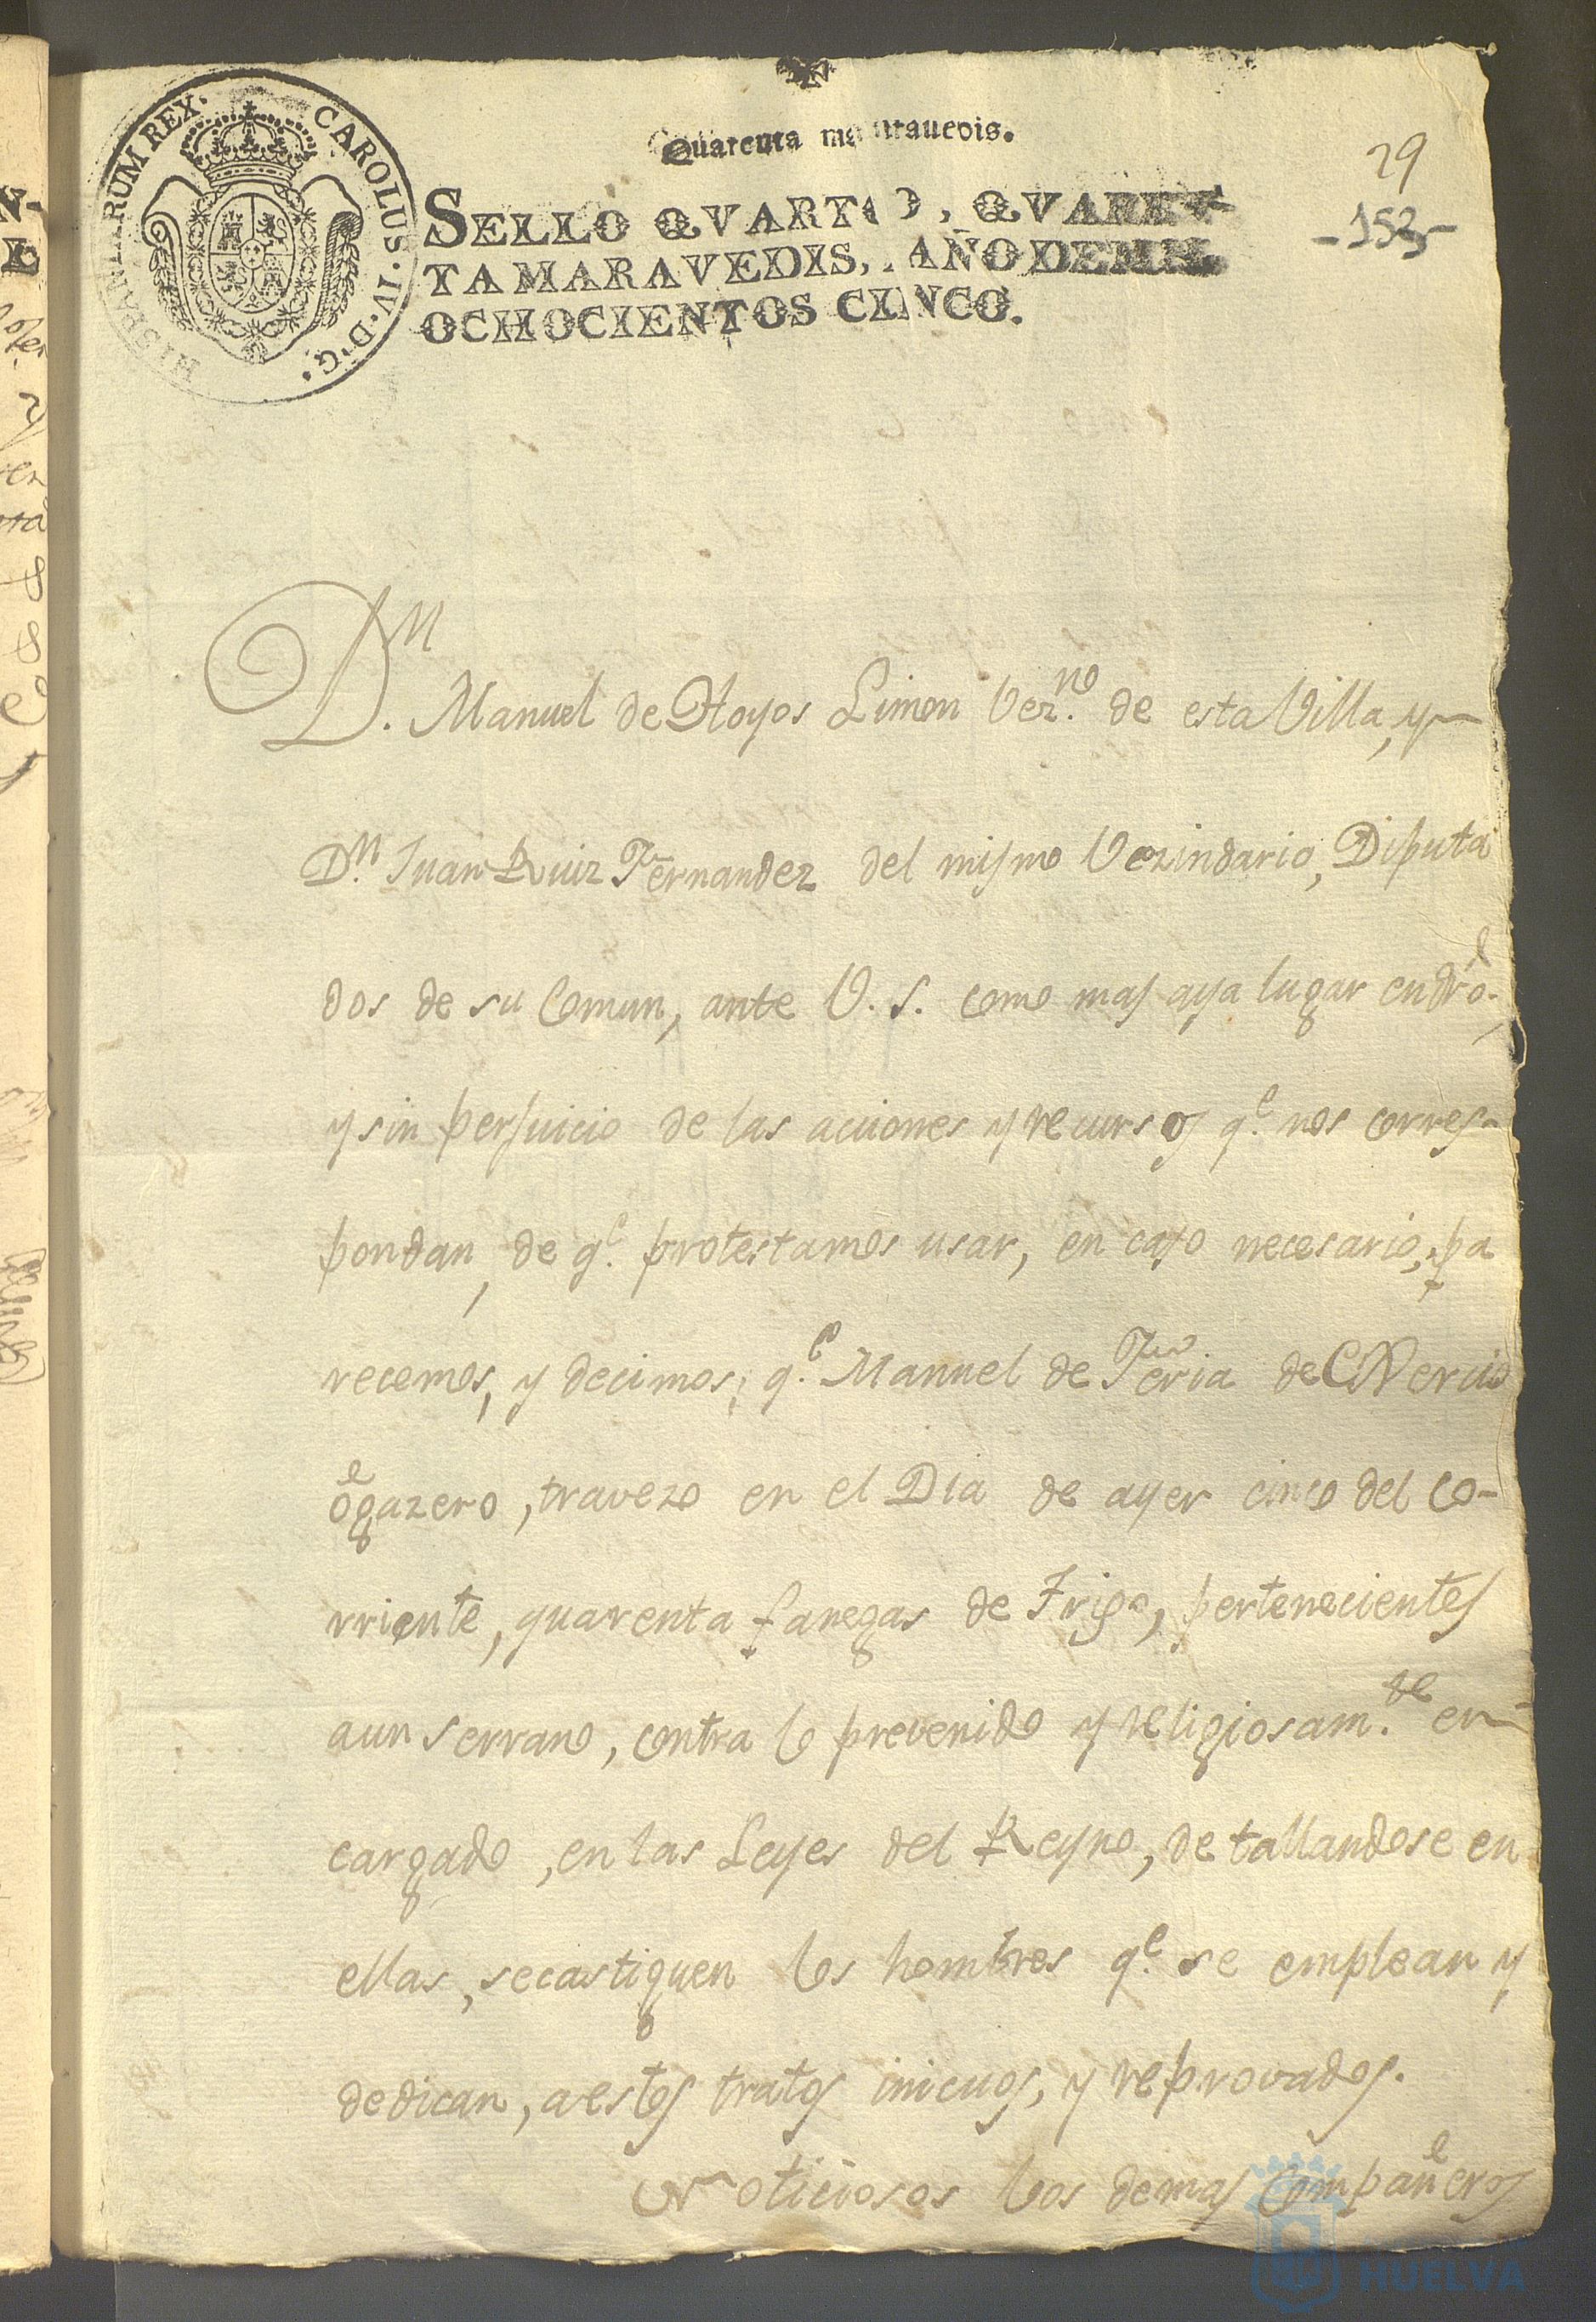 Quarenta marauedis.
HISPANIARUM REX. CAROLUS. IV. D. G.
29
-153-
SELLO QVARTO, QVAREN-
TA MARAVEDIS, AÑO DE MIL
OCHOCIENTOS CINCO.
Dn. Manuel de Hoyos Limon Vezno. de esta Villa, y
Dn. Juan Ruiz Fernandez del mismo Vezindario, Diputa
dos de su Comun, ante V. S. como mas aya lugar en dro.
y sin perjuicio de las acciones y recursos qe. nos corres-
pondan, de qe. protestamos usar, en caso necesario, pa
recemos, y decimos; qe. Manuel de Feria de
ogazero, travezo en el Dia de ayer cinco del co-
rriente, quarenta fanegas de Trigo, pertenecientes
a un serrano, contra lo prevenido y religiosamte. en
cargado, en las Leyes del Reyno, detallandose en
ellas, se castiguen los hombres qe. se emplean y
dedican, a estos tratos inicuos, y reprovados.
Noticiosos los demas Compañeros
HUELVA